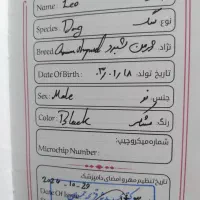 Name: Leo نام
Species: Dog سگ نوع
Breed: German Shepherd ژرمن شپرد نژاد:
Date Of Birth: ۰۳/۰۱/۱۸ تاریخ تولد:
Sex: Male نر جنس:
Color: Black مشکی رنگ:
شماره میکروچیپ:
Microchip Number:
تاریخ تنظیم مهر و امضای دامپزشک
2024-10-20
Date Of Issue